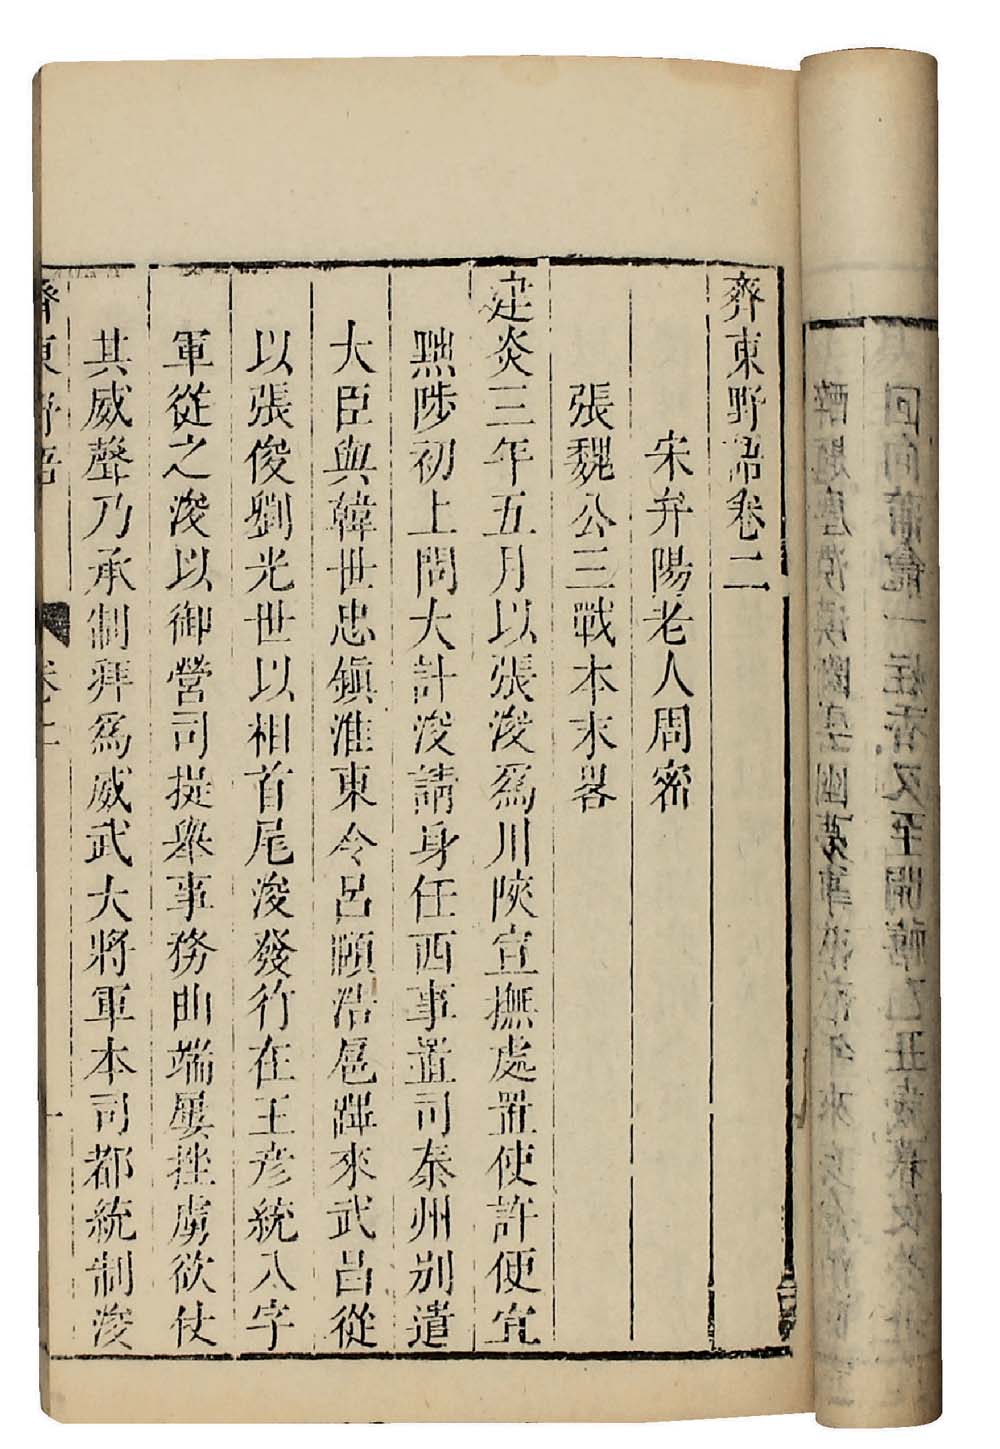 齊東野語卷二
宋弁陽老人周密
張魏公三戰本末畧
建炎三年五月以張浚爲川陝宣撫處置使許便宜
黜陟初上問大計浚請身任西事置司秦州別遣
大臣與韓世忠鎮淮東令呂頤浩扈蹕來武昌從
以張俊劉光世以相首尾浚發行在王彦統八字
軍從之浚以御營司提舉事務曲端屡挫虜欲仗
其威聲乃承制拜爲威武大將軍本司都統制浚
齊東野語 卷二 一